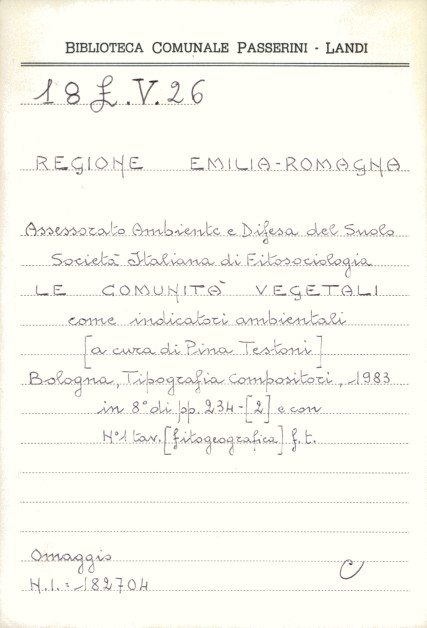 BIBLIOTECA COMUNALE PASSERINI - LANDI
18 £.V.26
REGIONE EMILIA-ROMAGNA
Assessorato Ambiente e Difesa del Suolo
Società Italiana di Fitosociologia
LE COMUNITÀ VEGETALI
come indicatori ambientali
[a cura di Pina Testoni]
Bologna, Tipografia Compositori, 1983
in 8° di pp. 234-[2] e con
N°1 tav. [fitogeografica] f.t.
Omaggio
N.I. = 182704
C